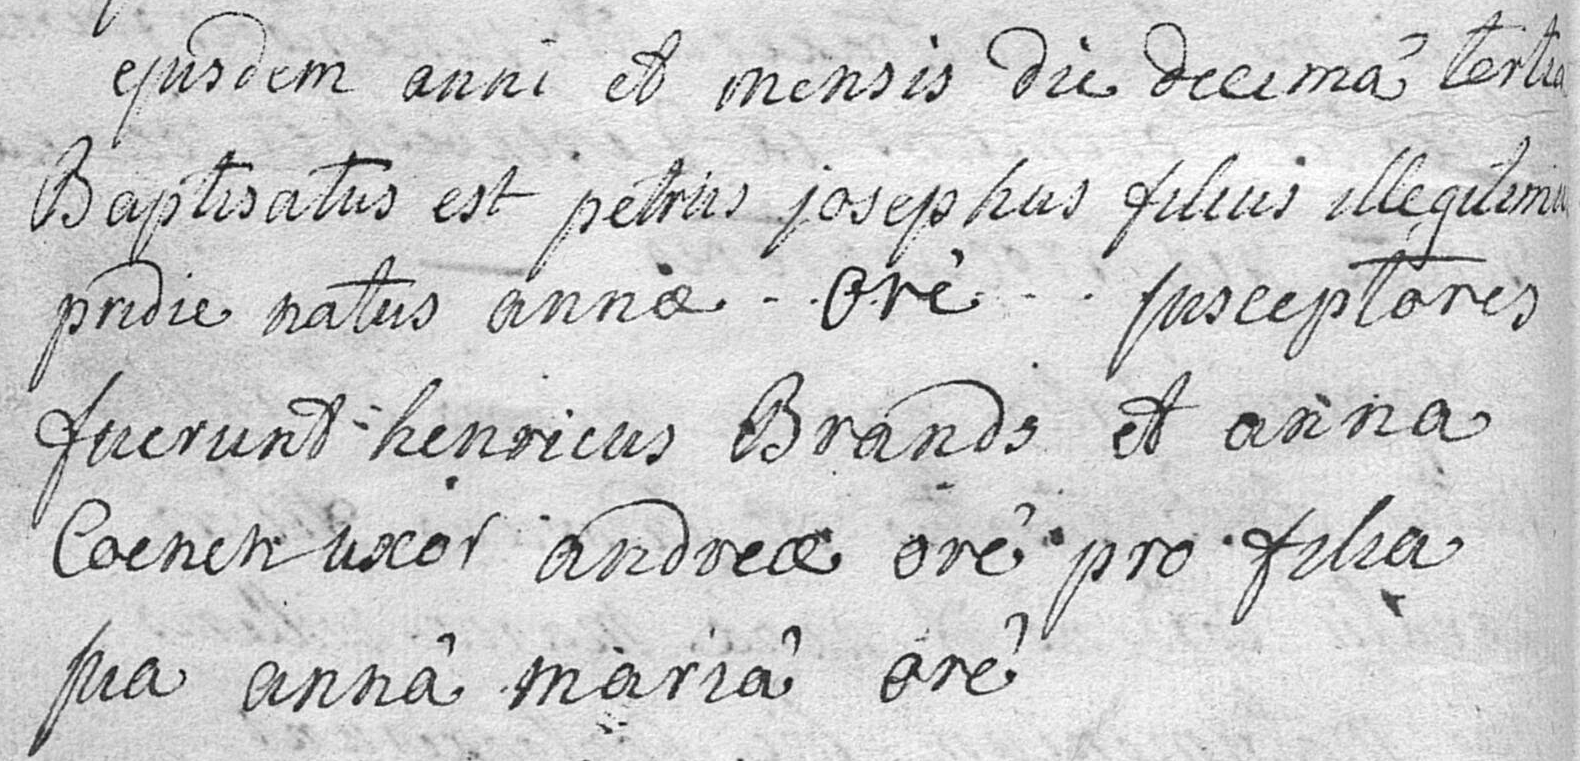 ejusdem anni et mensis die decimâ tertia
Baptisatus est petrus josephus filius illegitimus
pridie natus annæ - . oré - . susceptores
fuerunt henricus Brands et anna
Coenen uxor andreæ oré pro filia
sua annâ mariâ oré